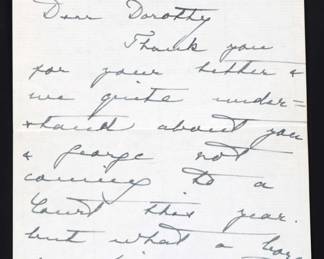 Dear Dorothy
Thank you
for your letter &
we quite under=
stand about you
& George not
coming to a
Court this year.
but what a